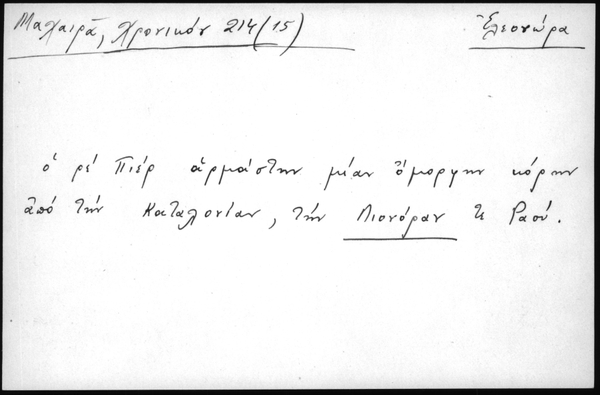 Μαχαιρᾶ, Χρονικόν 214 (15)
Ἐλεονώρα
ὁ ρὲ Πιὲρ ἁρμάστην μίαν ὄμορφην κόρην
ἀπὸ τὴν Καταλονίαν, τὴν Λιονόραν τε Ραού.